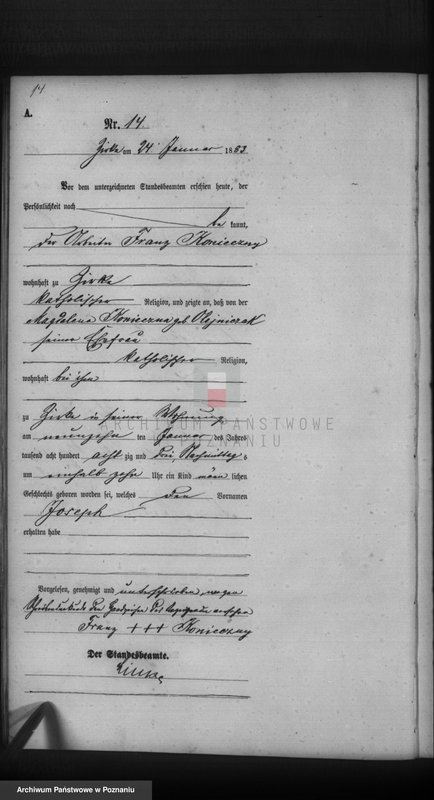 14
A.
Nr. 14.
Zirke am 24 Januar 1883.
Vor dem unterzeichneten Standesbeamten erschien heute, der
Persönlichkeit nach
be kannt,
der Arbeiter Franz Konieczny
wohnhaft zu Zirke
katholischer Religion, und zeigte an, daß von der
Magdalena Konieczna geb Olejniczak
seiner Ehefrau
katholischer Religion,
wohnhaft bei ihm
zu Zirke in seiner Wohnung
am neunzehn ten Januar des Jahres
tausend acht hundert acht zig und drei Nachmittag s
um einhalb zehn Uhr ein Kind männ lichen
Geschlechts geboren worden sei, welches den Vornamen
Joseph
erhalten habe
Vorgelesen, genehmigt und unterschrieben, wegen
den Handzeichen des
Franz +++ Konieczny
Der Standesbeamte.
ARCHIWUM PAŃSTWOWE
W POZNANIU
Archiwum Państwowe w Poznaniu